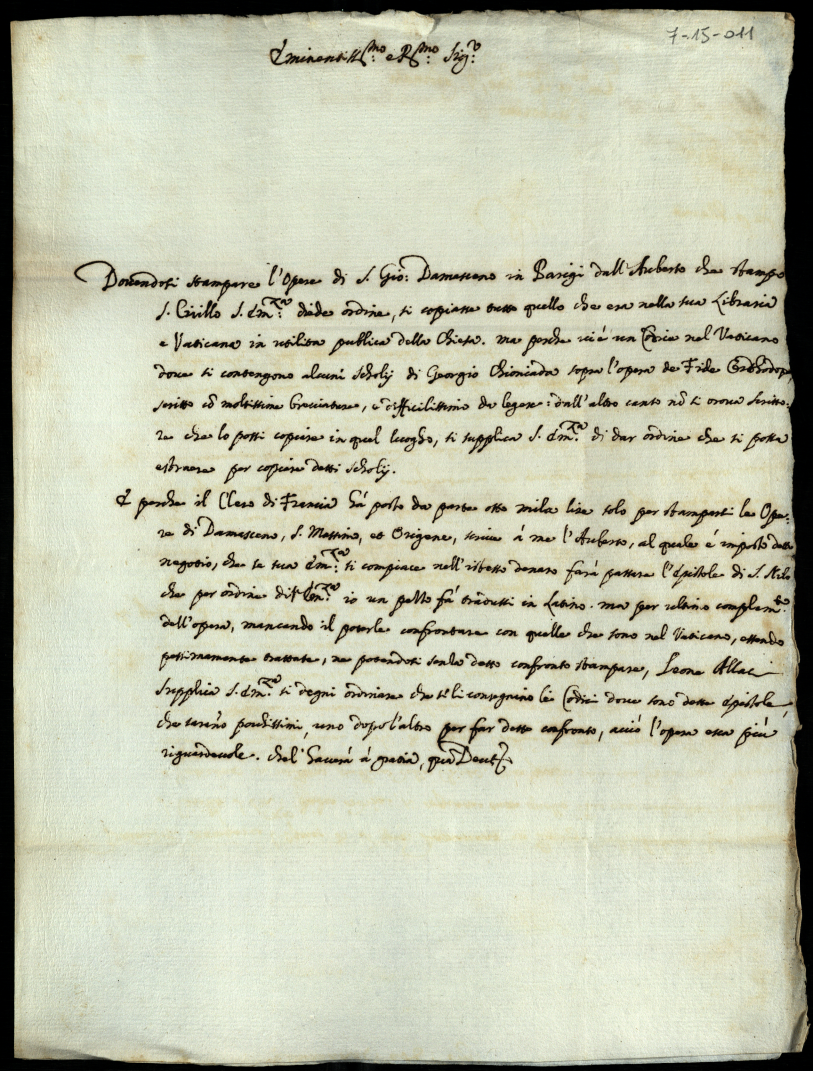 7-15-011
Eminentiss.mo e R.mo Sig.r
Dovendosi stampare l'Opere di S. Gio: Damasceno in Parigi dall'Auberto che stampò
S. Cirillo S. Em.za diede ordine, si copiasse tutto quello che era nella sua Libraria
e Vaticana in utilità publica della Chiesa. ma perche vi è un Codice nel Vaticano
dove si contengono alcuni scholij di Georgio Chioniada sopra l'opera de Fide Orthodoxa,
scritto con moltissime breviature, e difficilissimo da legere: dall'altro canto nõ si trova scritto-
re che lo possi copiare in quel luogho, si supplica S. Em.za di dar ordine che si possa
estraere per copiare detti scholij.
E perche il Clero di Francia hà posto da parte otto mila lire solo per stamparsi le Ope-
re di Damasceno, S. Massimo, et Origene, scrive à me l'Auberto, al quale è imposto detto
negotio, che se sua Em.za si compiace nell'istesso denaro farà passare l'Epistole di S. Nilo
che per ordine di S. Em.za io un pezzo fà tradussi in Latino. ma per ultimo complem.to
dell'opera, mancando il poterle confrontare con quelle che sono nel Vaticano, essendo
pessimamente trattate, ne potendosi senza detto confronto stampare, Leone Allacci
supplica S. Em.za si degni ordinare che se li consegnino lè Codici dove sono dette Epistole,
che saranno pochissimi, uno dopo l'altro per far detto confronto, acciò l'opera esca più
riguardevole. Che l'haverà à gratia, quã Deus